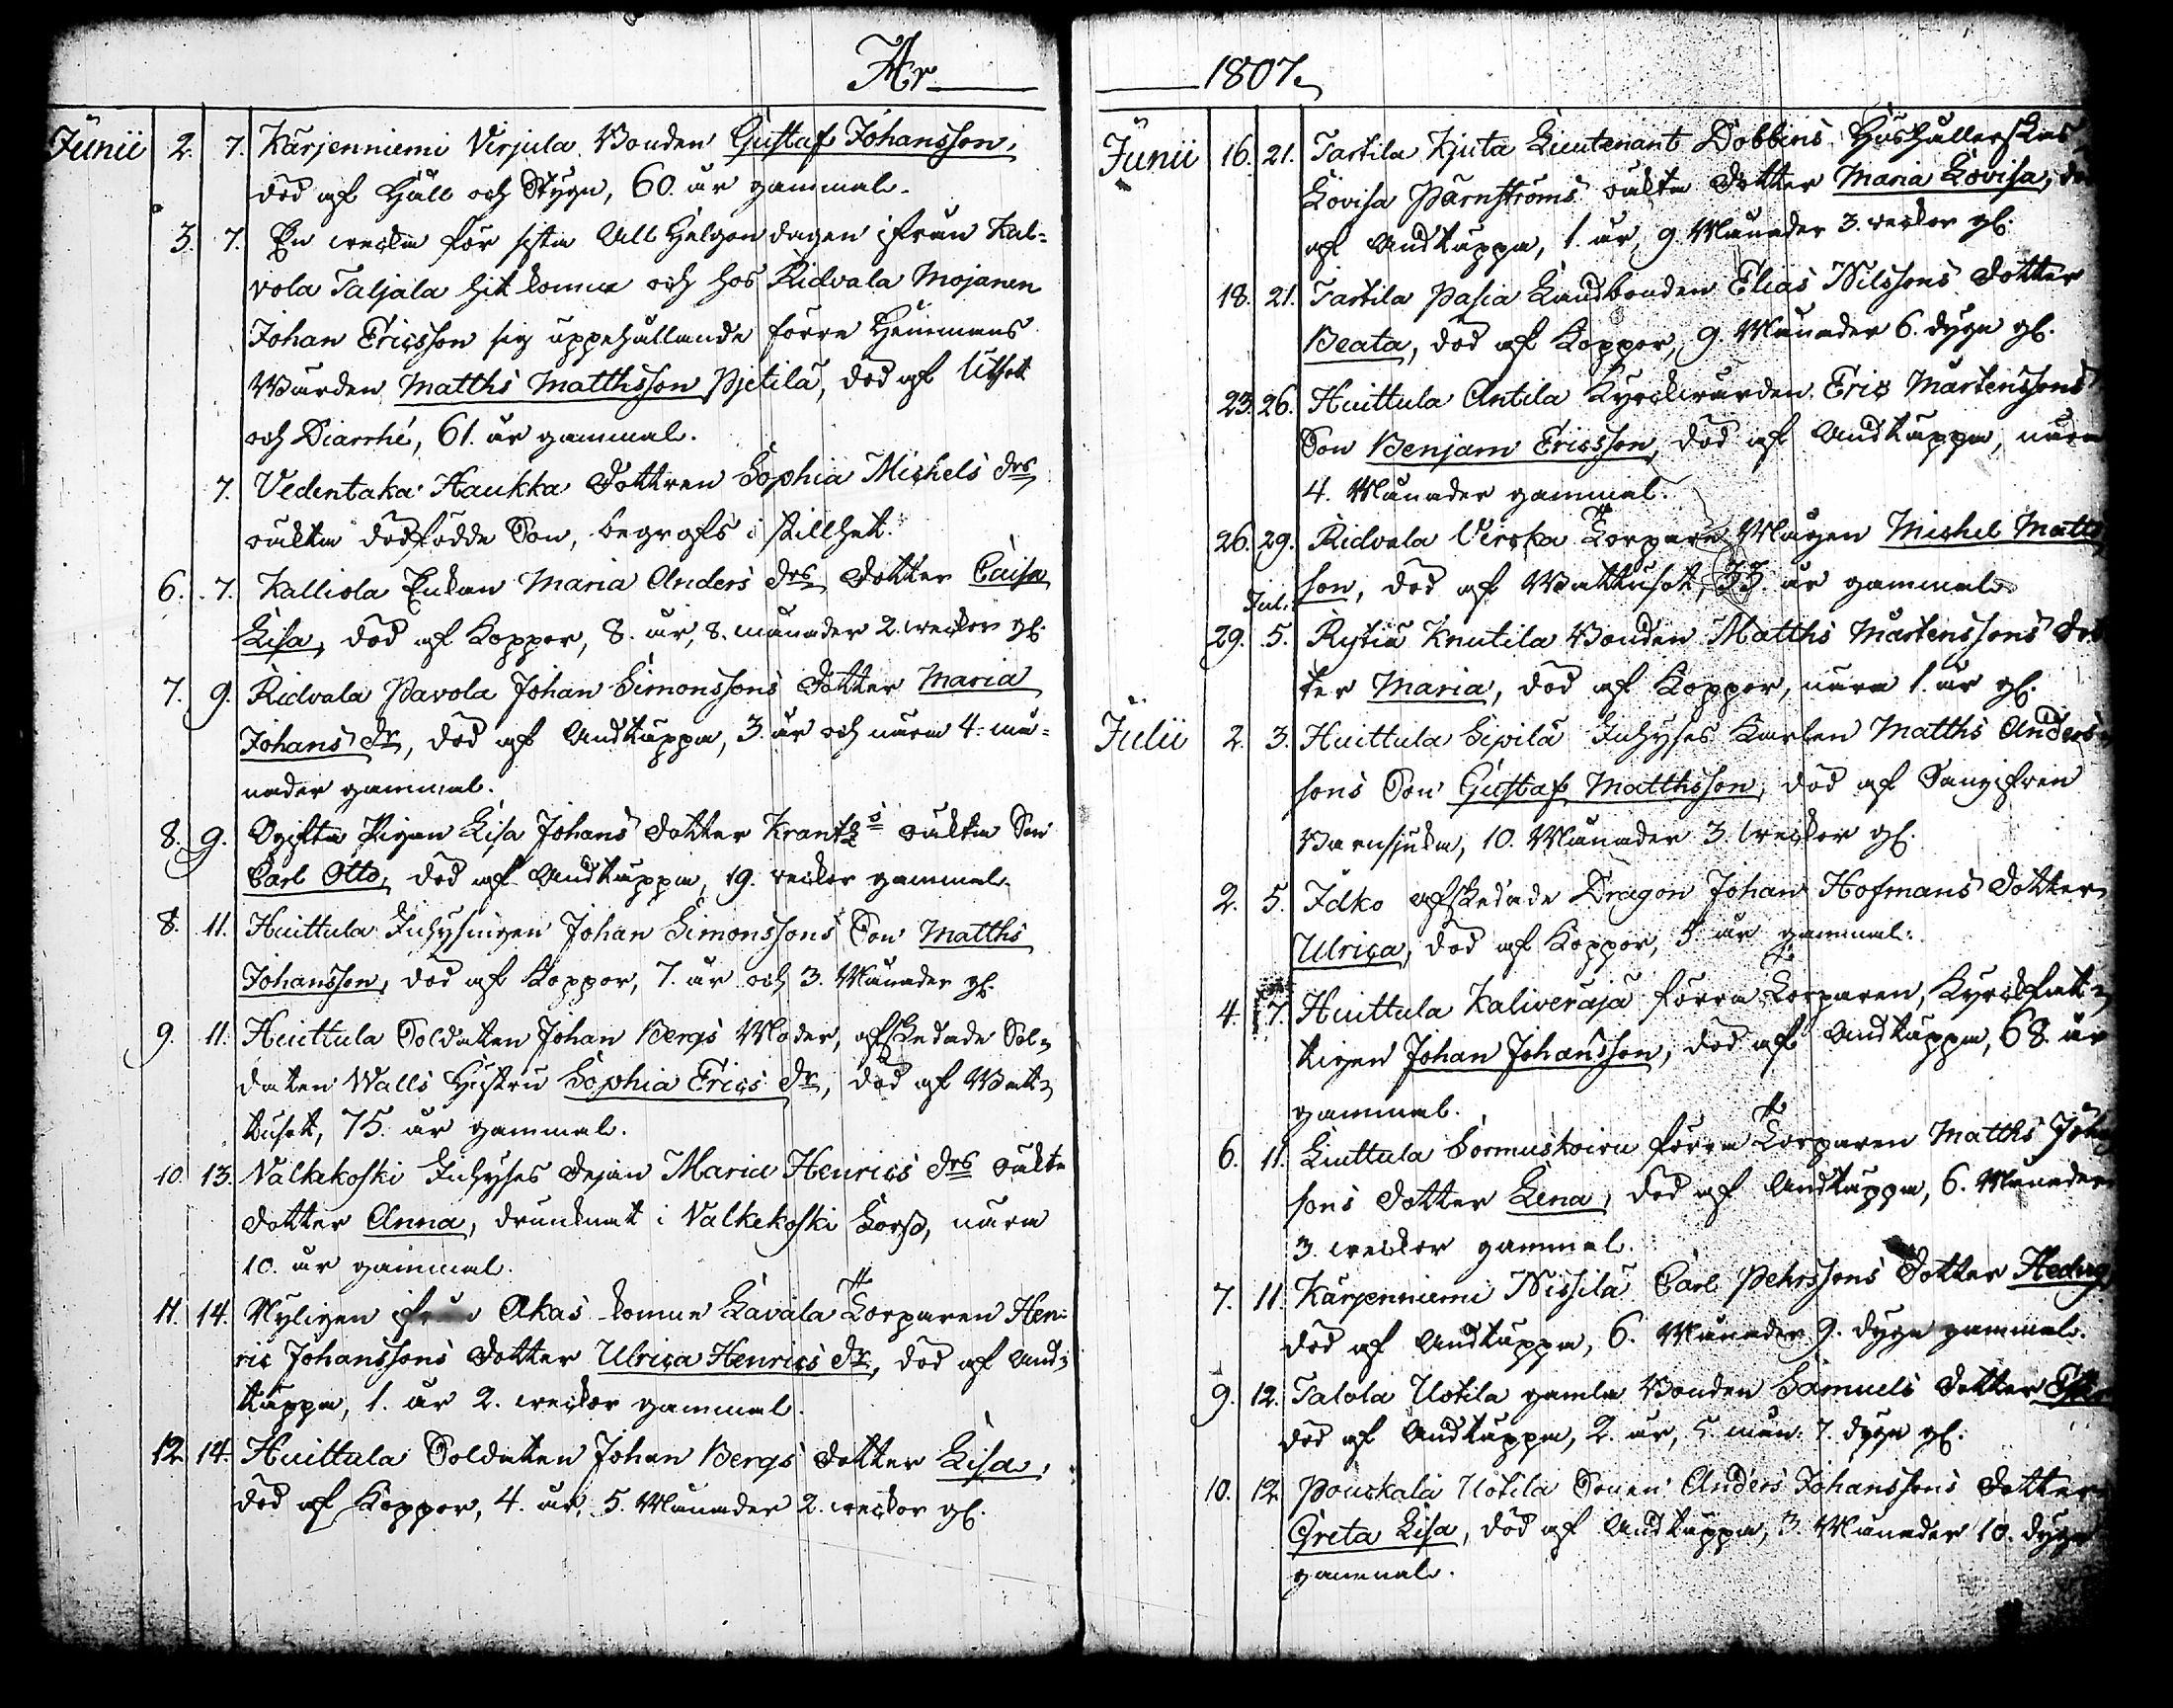 År
Junii 2. 7. Kärjenniemi Virjula Bonden Gustaf Johansson,
död af Håll och Styng, 60. år gammal.
3. 7. En wecka för sista All Helgon dagen ifrån Kal-
vola Taljala hit komne och hos Ridvala Mojanen
Johan Ericsson sig uppehållande förre Hemmans
Bonden Matths Matthsson Pjetilä, död af Utsot
och Diarrhé, 61. år gammal.
7. Vedentaka Haukka Dottren Sophia Michels drs
oäkta dödfödde Son, begrofs i stillhet.
6. 7. Kalliola Enkan Maria Anders drs dotter Caisa
Lisa, död af Koppor, 8. år, 8. månader 2. weckor gl.
7. 9. Ridvala Pavola Johan Simonssons dotter Maria
Johans dr, död af Andtäppa, 3. år och nära 4. må-
nader gammal.
8. 9. Ogifta Pigan Lisa Johans dotter Krantz's oäkta Son
Carl Otto, död af Andtäppa, 19. weckor gammal.
8. 11. Huittula Inhysingen Johan Simonssons Son Matths
Johansson, död af Koppor, 7. år och 3. Månader gl.
9. 11. Huittula Soldaten Johan Bergs Moder, afskedade Sol-
daten Walls Hustru Sophia Erics dr, död af Wat-
tusot, 75. år gammal.
10. 13. Valkekoski Inhyses Dejan Maria Henrics drs oäkta
dotter Anna, drunknat i Valkekoski Fors, nära
10. år gammal.
11. 14. Nyligen ifrån Akas komne Lavala Torparen Hen-
ric Johanssons dotter Ulrica Henrics dr, död af And-
täppa, 1. år 2. weckor gammal.
12. 14. Huittula Soldaten Johan Bergs dotter Lisa,
död af Koppor, 4. år, 5. Månader 2. weckor gl.
1807.
Junii 16. 21. Tarttila Kjuta Lieutenant Dobbins Hushållerskas
Lovisa Pärnströms oäkta dotter Maria Lovisa,
af Andtäppa, 1. år, 9. Månader 3. weckor gl.
18. 21. Tarttila Pasia Landbonden Elias Nilssons dotter
Beata, död af Koppor, 9. Månader 6. dygn gl.
23. 26. Huittula Antila Kyrckwärden Eric Mårtenssons
Son Benjam Ericsson, död af Andtäppa, nära
4. Månader gammal.
26. 29. Ridvala Virska Torpare Mågen Michel Matts
son, död af Wattusot, 33. år gammal.
Jul.
29. 5. Rytiä Knutila Bonden Matths Mårtenssons Dot
ter Maria, död af Koppor, nära 1. år gl.
Julii 2. 3. Huittula Sipilä Inhyses Karlen Matths Anders-
sons Son Gustaf Matthsson, död af
Barnsjuka, 10. Månader 3. weckor gl.
2. 5. Idko afskedade Dragon Johan Hofmans dotter
Ulrica, död af Koppor, 5. år gammal.
4. 7. Huittula Kaliveräjä förra Torparen, Kyrckfat-
tigen Johan Johansson, död af Andtäppa, 68. år
gammal.
6. 11. Liuttula Sormuskoivu förra Torparen Matths
sons dotter Lena, död af Andtäppa, 6. Månader
3. weckor gammal.
7. 11. Kärjenniemi Nissilä Carl Pehrssons Dotter Hedvig
död af Andtäppa, 6. Månader 9. dygn gammal.
9. 12. Talola Uotila gamla Bonden Samuels dotter
död af Andtäppa, 2. år, 5. mån. 7. dygn gl.
10. 12. Pouckala Uotila Sonen Anders Johanssons dotter
Greta Lisa, död af Andtäppa, 3. Månader 10. dygn
gammal.